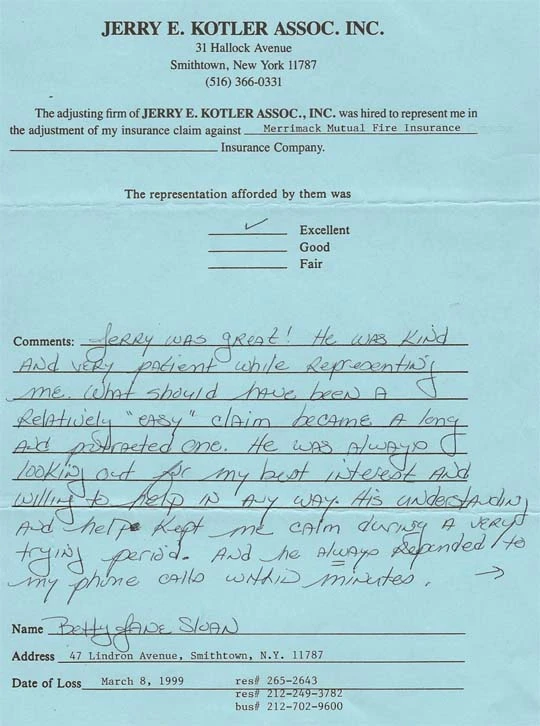 JERRY E. KOTLER ASSOC. INC.
31 Hallock Avenue
Smithtown, New York 11787
(516) 366-0331
The adjusting firm of JERRY E. KOTLER ASSOC., INC. was hired to represent me in
the adjustment of my insurance claim against Merrimack Mutual Fire Insurance
Insurance Company.
The representation afforded by them was
✓ Excellent
Good
Fair
Comments: Jerry was great! He was kind
and very patient while representing
me. What should have been a
relatively "easy" claim became a long
and protracted one. He was always
looking out for my best interest and
willing to help in any way. His understanding
and help kept me calm during a very
trying period. And he always reponded to
my phone calls within minutes. →
Name Betty Jane Sloan
Address 47 Lindron Avenue, Smithtown, N.Y. 11787
Date of Loss March 8, 1999 res# 265-2643
res# 212-249-3782
bus# 212-702-9600